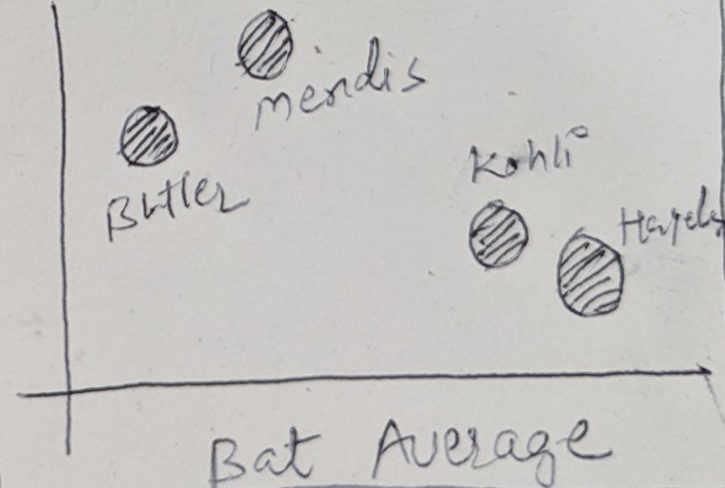 Mendis
Butler
Kohli
Bat Average